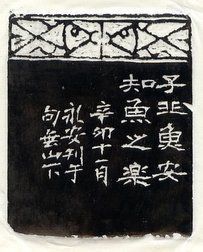 子非魚安
知魚之楽
辛卯十一月
永安刊于
句山下